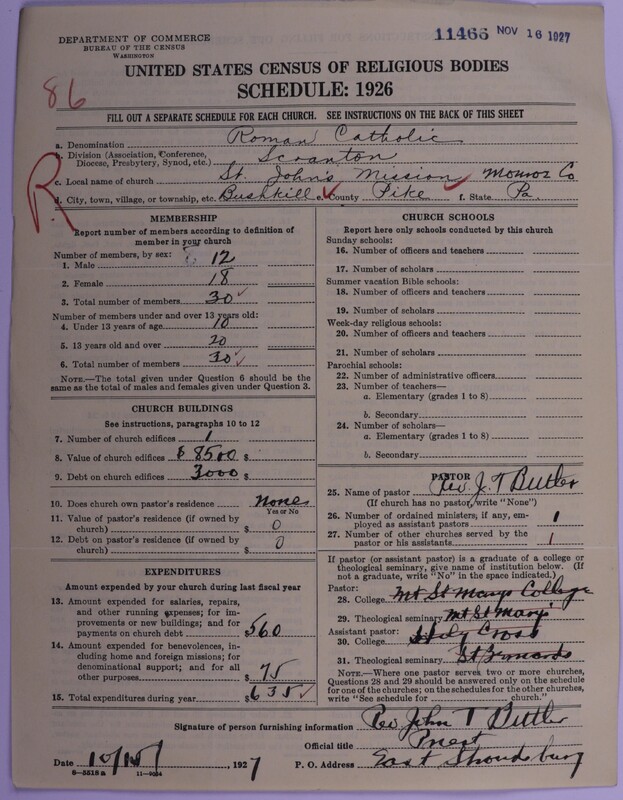 DEPARTMENT OF COMMERCE
BUREAU OF THE CENSUS
WASHINGTON
11466 NOV 16 1927
UNITED STATES CENSUS OF RELIGIOUS BODIES
SCHEDULE: 1926
86
FILL OUT A SEPARATE SCHEDULE FOR EACH CHURCH. SEE INSTRUCTIONS ON THE BACK OF THIS SHEET
R
a. Denomination Roman Catholic
b. Division (Association, Conference, Diocese, Presbytery, Synod, etc.) Scranton
c. Local name of church St. John's Mission Monroe Co
d. City, town, village, or township, etc. Bushkill e. County Pike f. State Pa.
MEMBERSHIP
Report number of members according to definition of
member in your church
Number of members, by sex:
1. Male 12
2. Female 18
3. Total number of members 30
Number of members under and over 13 years old:
4. Under 13 years of age 10
5. 13 years old and over 20
6. Total number of members 30
NOTE.—The total given under Question 6 should be the
same as the total of males and females given under Question 3.
CHURCH BUILDINGS
See instructions, paragraphs 10 to 12
7. Number of church edifices 1
8. Value of church edifices $ 8500 $
9. Debt on church edifices 3000 $
10. Does church own pastor's residence None
Yes or No
11. Value of pastor's residence (if owned by
church) $ 0
12. Debt on pastor's residence (if owned by
church) $ 0
EXPENDITURES
Amount expended by your church during last fiscal year
13. Amount expended for salaries, repairs,
and other running expenses; for im-
provements or new buildings; and for
payments on church debt $560
14. Amount expended for benevolences, in-
cluding home and foreign missions; for
denominational support; and for all
other purposes $ 75
15. Total expenditures during year $635
CHURCH SCHOOLS
Report here only schools conducted by this church
Sunday schools:
16. Number of officers and teachers
17. Number of scholars
Summer vacation Bible schools:
18. Number of officers and teachers
19. Number of scholars
Week-day religious schools:
20. Number of officers and teachers
21. Number of scholars
Parochial schools:
22. Number of administrative officers
23. Number of teachers—
a. Elementary (grades 1 to 8)
b. Secondary
24. Number of scholars—
a. Elementary (grades 1 to 8)
b. Secondary
PASTOR
25. Name of pastor Rev. J. T. Butler
(If church has no pastor, write "None")
26. Number of ordained ministers, if any, em-
ployed as assistant pastors 1
27. Number of other churches served by the
pastor or his assistants 1
If pastor (or assistant pastor) is a graduate of a college or
theological seminary, give name of institution below. (If
not a graduate, write "No" in the space indicated.)
Pastor:
28. College Mt St Marys College
29. Theological seminary Mt St Mary's
Assistant pastor:
30. College Holy Cross
31. Theological seminary
NOTE.—Where one pastor serves two or more churches,
Questions 28 and 29 should be answered only on the schedule
for one of the churches; on the schedules for the other churches,
write "See schedule for church."
Signature of person furnishing information Rev John T Butler
Official title Priest
Date 10/15, 1927 P. O. Address East Stroudsburg
8—5518 a 11—9024